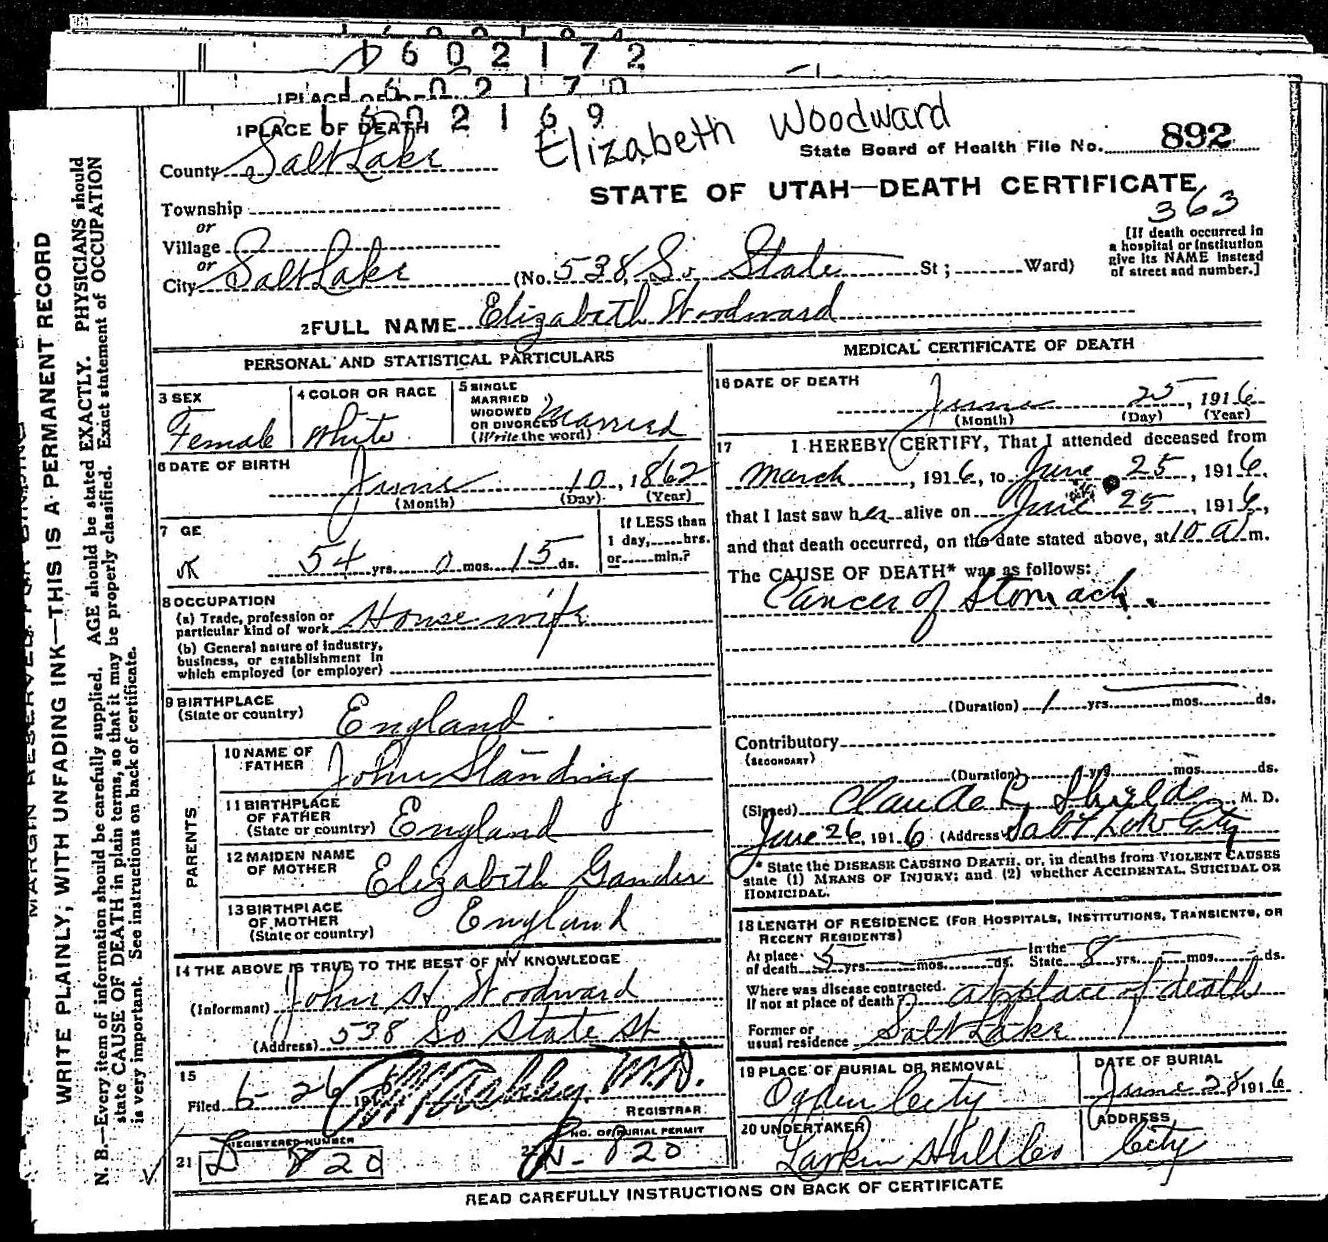 1602172
1602170
1602169
1 PLACE OF DEATH
Elizabeth Woodward
County Salt Lake
State Board of Health File No. 892
STATE OF UTAH—DEATH CERTIFICATE
363
Township
or
Village
or
City Salt Lake (No. 538 So State St; Ward)
[If death occurred in
a hospital or institution
give its NAME instead
of street and number.]
2 FULL NAME Elizabeth Woodward
PERSONAL AND STATISTICAL PARTICULARS
3 SEX
Female
4 COLOR OR RACE
White
5 SINGLE
MARRIED
WIDOWED
OR DIVORCED
(Write the word)
Married
6 DATE OF BIRTH
June 10, 1862
(Month) (Day) (Year)
7 GE
54 yrs. 0 mos. 15 ds.
If LESS than
1 day, hrs.
or min.?
8 OCCUPATION
(a) Trade, profession or
particular kind of work House wife
(b) General nature of industry,
business, or establishment in
which employed (or employer)
9 BIRTHPLACE
(State or country) England
PARENTS
10 NAME OF
FATHER John Standing
11 BIRTHPLACE
OF FATHER
(State or country) England
12 MAIDEN NAME
OF MOTHER Elizabeth Gander
13 BIRTHPLACE
OF MOTHER
(State or country) England
14 THE ABOVE IS TRUE TO THE BEST OF MY KNOWLEDGE
(Informant) John H Woodward
(Address) 538 So State St
15
Filed 6-26 191 M.D.
REGISTRAR
REGISTERED NUMBER
21 820
NO. OF BURIAL PERMIT
820
MEDICAL CERTIFICATE OF DEATH
16 DATE OF DEATH
June 25, 1916
(Month) (Day) (Year)
17 I HEREBY CERTIFY, That I attended deceased from
March, 1916, to June 25, 1916.
that I last saw her alive on June 25, 1916,
and that death occurred, on the date stated above, at 10 a m.
The CAUSE OF DEATH* was as follows:
Cancer of Stomach.
(Duration) 1 yrs. mos. ds.
Contributory
(SECONDARY)
(Duration) yrs. mos. ds.
(Signed) Claude L. Shields M. D.
June 26, 1916 (Address) Salt Lake City
* State the DISEASE CAUSING DEATH, or, in deaths from VIOLENT CAUSES
state (1) MEANS OF INJURY; and (2) whether ACCIDENTAL, SUICIDAL OR
HOMICIDAL.
18 LENGTH OF RESIDENCE (FOR HOSPITALS, INSTITUTIONS, TRANSIENTS, OR
RECENT RESIDENTS)
At place
of death 5 yrs. mos. ds. In the
State 8 yrs. mos. ds.
Where was disease contracted.
If not at place of death? at place of death
Former or
usual residence Salt Lake
19 PLACE OF BURIAL OR REMOVAL
Ogden City
DATE OF BURIAL
June 28 1916
20 UNDERTAKER
Larkin
ADDRESS
City
READ CAREFULLY INSTRUCTIONS ON BACK OF CERTIFICATE
MARGIN RESERVED FOR BINDING
WRITE PLAINLY, WITH UNFADING INK—THIS IS A PERMANENT RECORD
N. B.—Every item of information should be carefully supplied. AGE should be stated EXACTLY. PHYSICIANS should
state CAUSE OF DEATH in plain terms, so that it may be properly classified. Exact statement of OCCUPATION
is very important. See instructions on back of certificate.